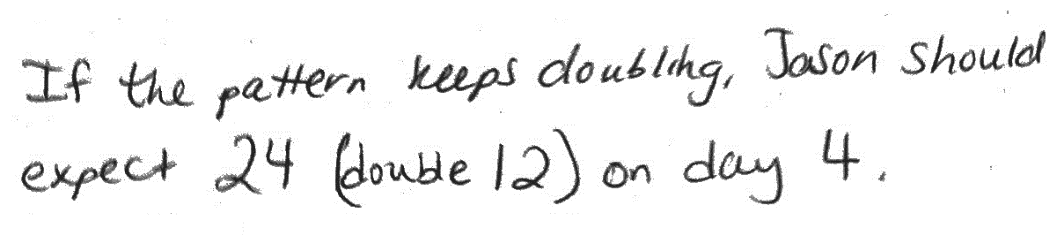 If the pattern keeps doubling, Jason should
expect 24 (double 12) on day 4.